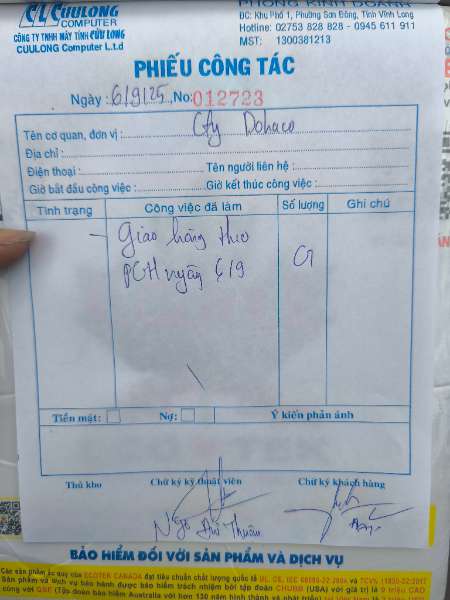 CL CUULONG
COMPUTER
CÔNG TY TNHH MÁY TÍNH CỬU LONG
CUULONG Computer L.t.d
PHÒNG KINH DOANH
ĐC: Khu Phố 1, Phường Sơn Đông, Tỉnh Vĩnh Long
Hotline: 02753 828 828 - 0945 611 911
MST: 1300381213
PHIẾU CÔNG TÁC
Ngày: 6/9/25, No: 012723
Tên cơ quan, đơn vị: Cty Dohaco
Địa chỉ:
Điện thoại: Tên người liên hệ:
Giờ bắt đầu công việc: Giờ kết thúc công việc:
Tình trạng Công việc đã làm Số lượng Ghi chú
Giao hàng theo
PGH ngày 6/9
Tiền mặt: Nợ: Ý kiến phản ánh
Thủ kho Chữ ký kỹ thuật viên Chữ ký khách hàng
Ngô Đức Thuân
BẢO HIỂM ĐỐI VỚI SẢN PHẨM VÀ DỊCH VỤ
Các sản phẩm ắc quy của ECOTER CANADA đạt tiêu chuẩn chất lượng quốc tế
Sản phẩm và dịch vụ bảo hành được bảo hiểm trách nhiệm bởi tập đoàn CHUBB (USA) với giá trị
cùng với QBE (Tập đoàn bảo hiểm Australia với hơn 130 năm hình thành và